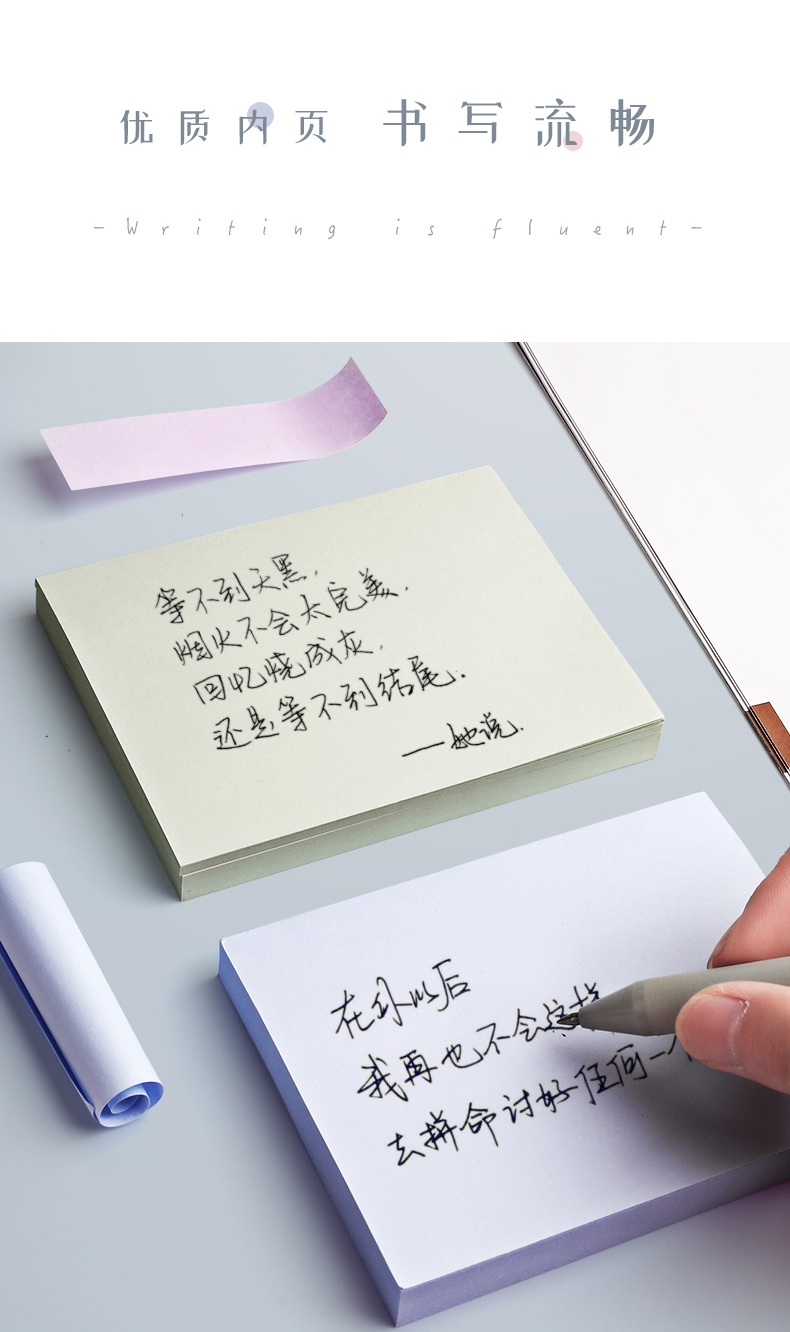 优质内页 书写流畅
–Writing is fluent–
等不到天黑,
烟火不会太完美,
回忆烧成灰,
还是等不到结尾.
——她说.
在你以后
我再也不会这
去拼命讨好任何一